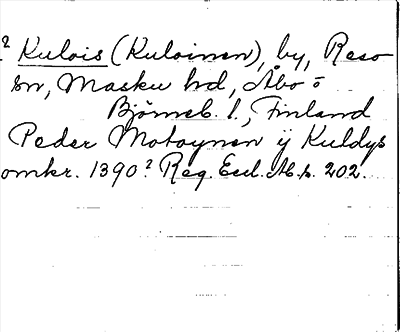 ? Kulois (Kuloinen), by, Reso
sn, Masku hd, Åbo o
Björneb. l., Finland
Peder Motoynen ÿ Kuldys
omkr. 1390? Reg. Eccl. Ab. s. 202.